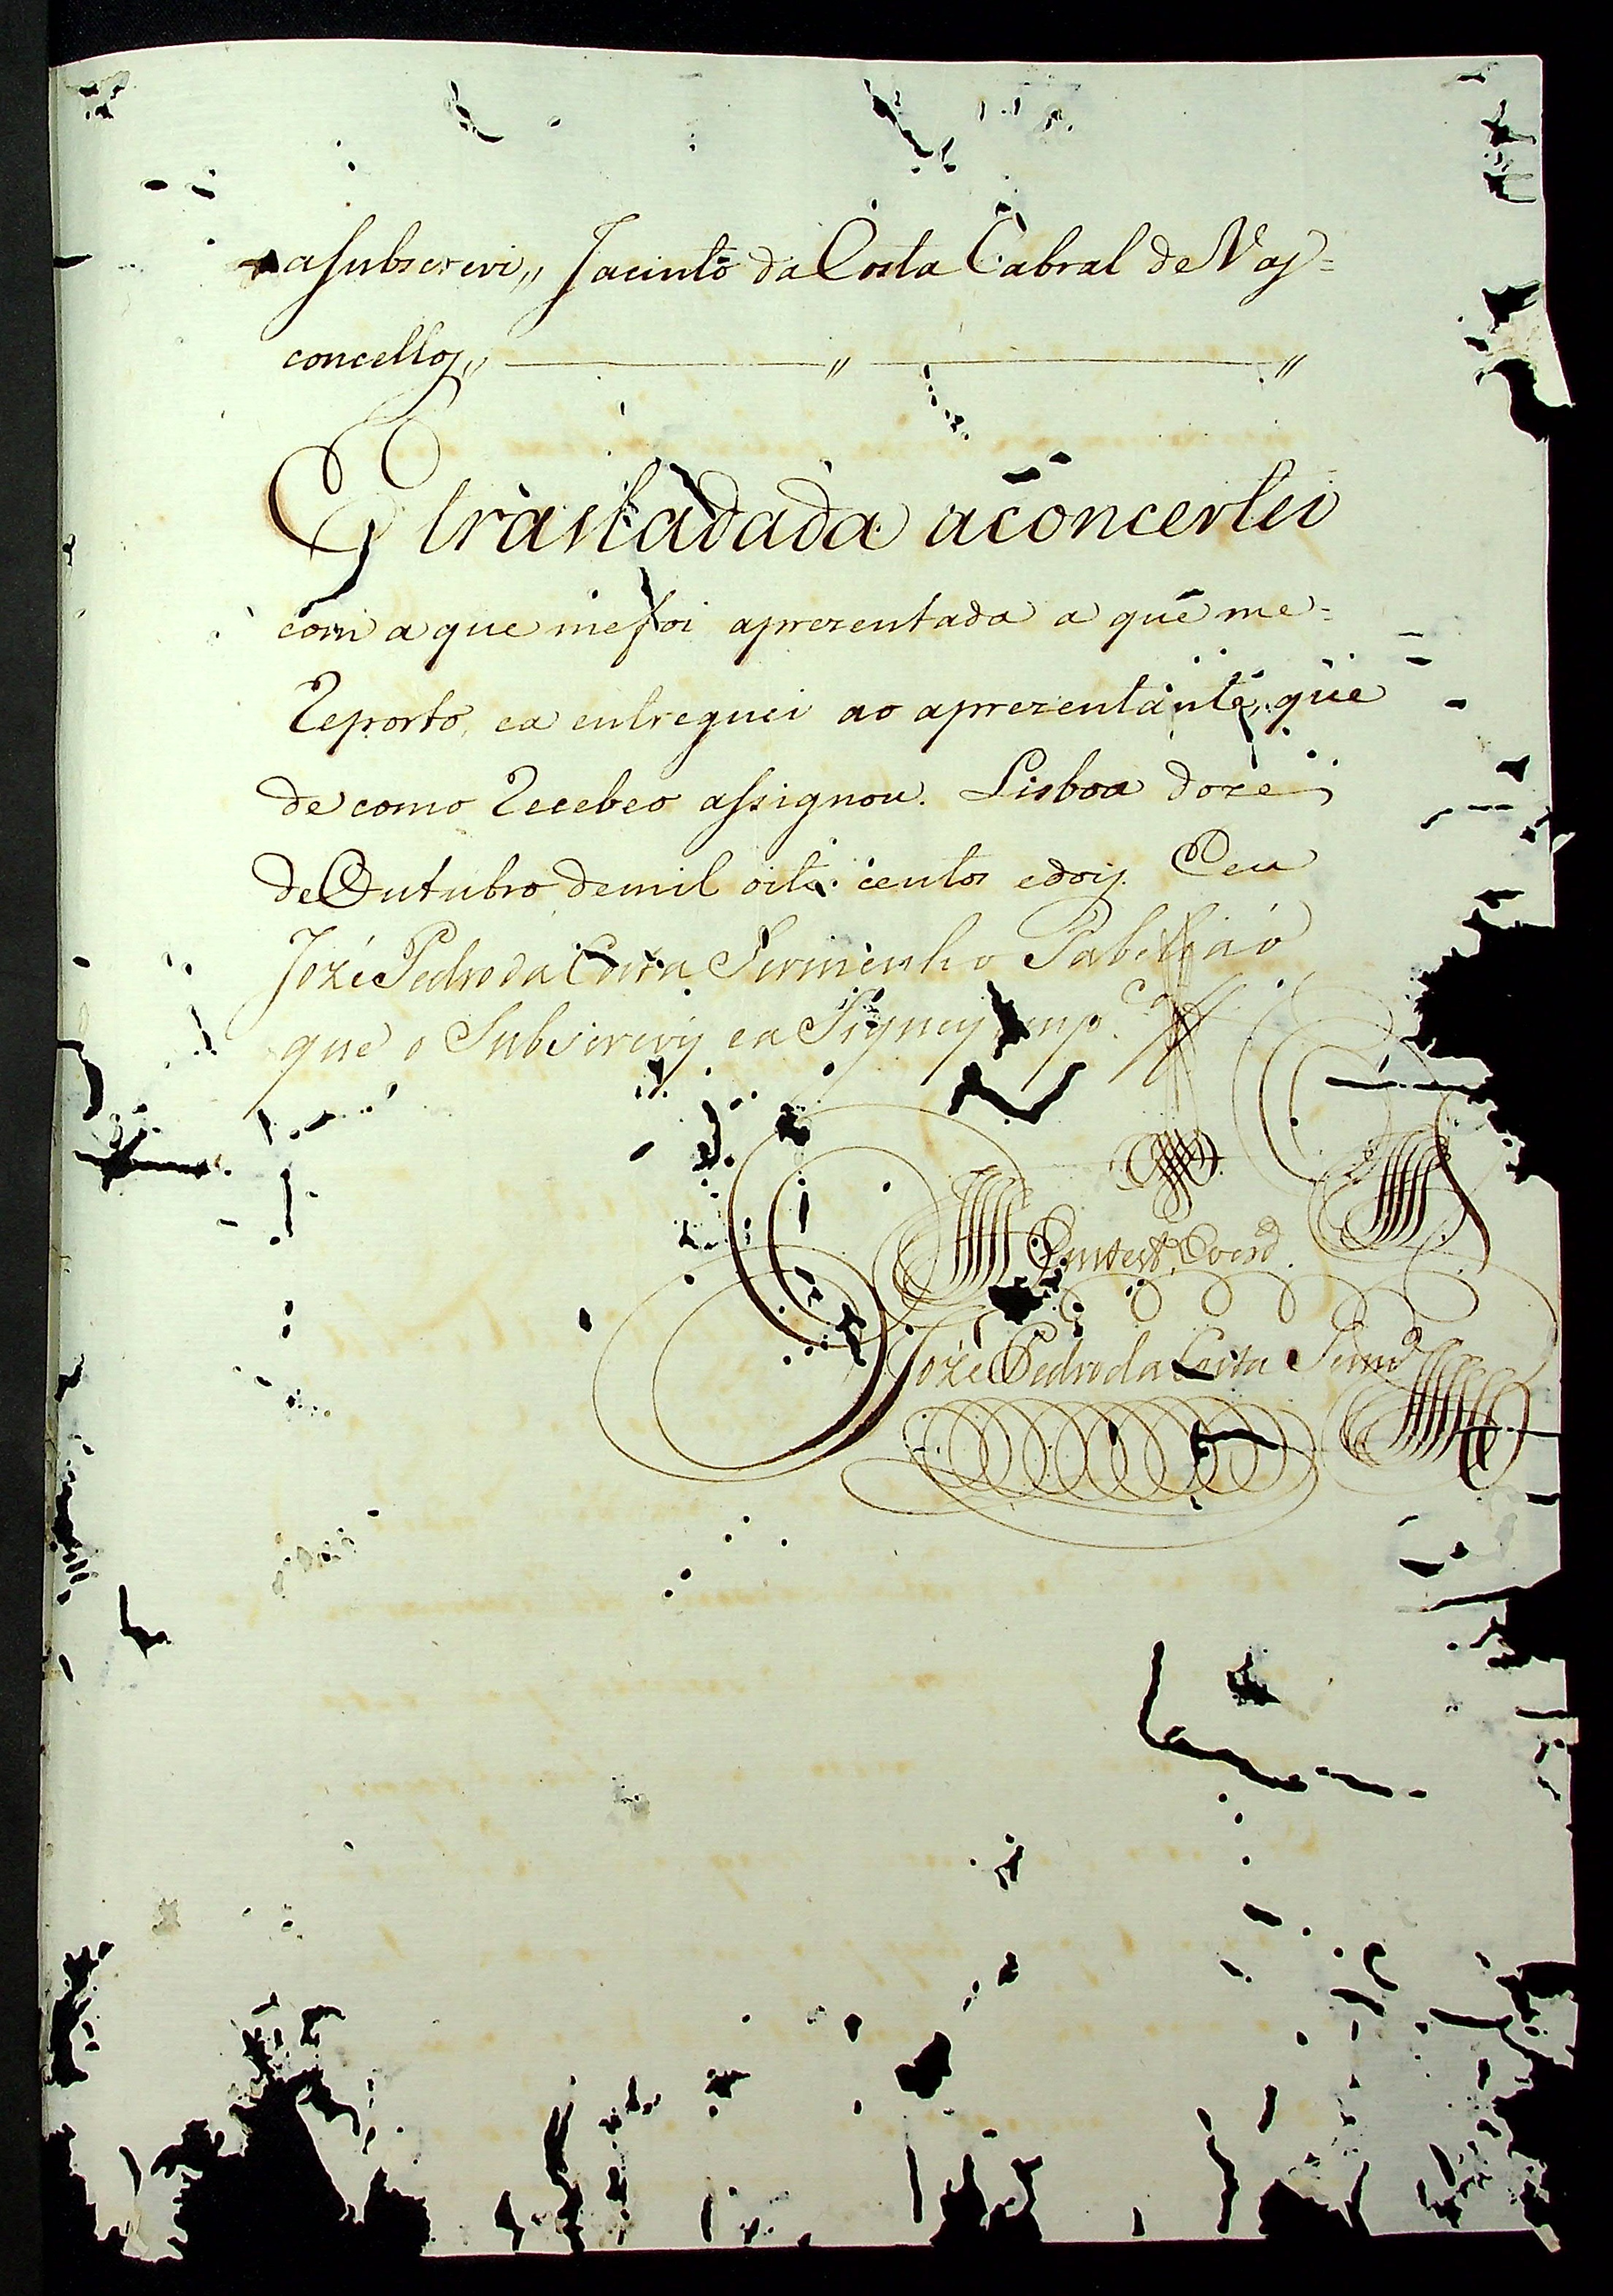 a subscrevi,, Jacinto da Costa Cabral de Vas=
concellos,, ———— ,, ———— ,,
E trasladada a concertei
com a que me foi aprezentada a que me=
Reporto, e a entreguei ao aprezentante, que
de como Recebeo assignou. Lisboa doze
de Outubro de mil oito centos e dois. E eu
Jozé Pedro da Costa Tabelliaõ
que o Subscrevy e a Signey emp.co
Jozé Pedro da Costa